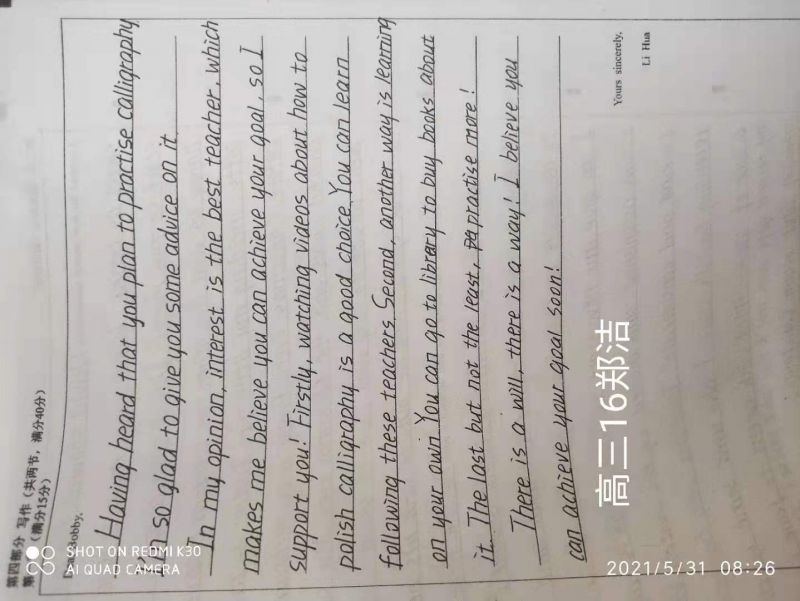 第四部分 写作（共两节，满分40分）
（满分15分）
Bobby,
Having heard that you plan to practise calligraphy
so glad to give you some advice on it
In my opinion, interest is the best teacher, which
makes me believe you can achieve your goal, so I
support you! Firstly, watching videos about how to
polish calligraphy is a good choice. You can learn
following these teachers. Second, another way is learning
on your own. You can go to library to buy books about
it. The last but not the least, practise more!
There is a will, there is a way! I believe you
can achieve your goal soon!
Yours sincerely,
Li Hua
高三16郑洁
SHOT ON REDMI K30
AI QUAD CAMERA
2021/5/31 08:26